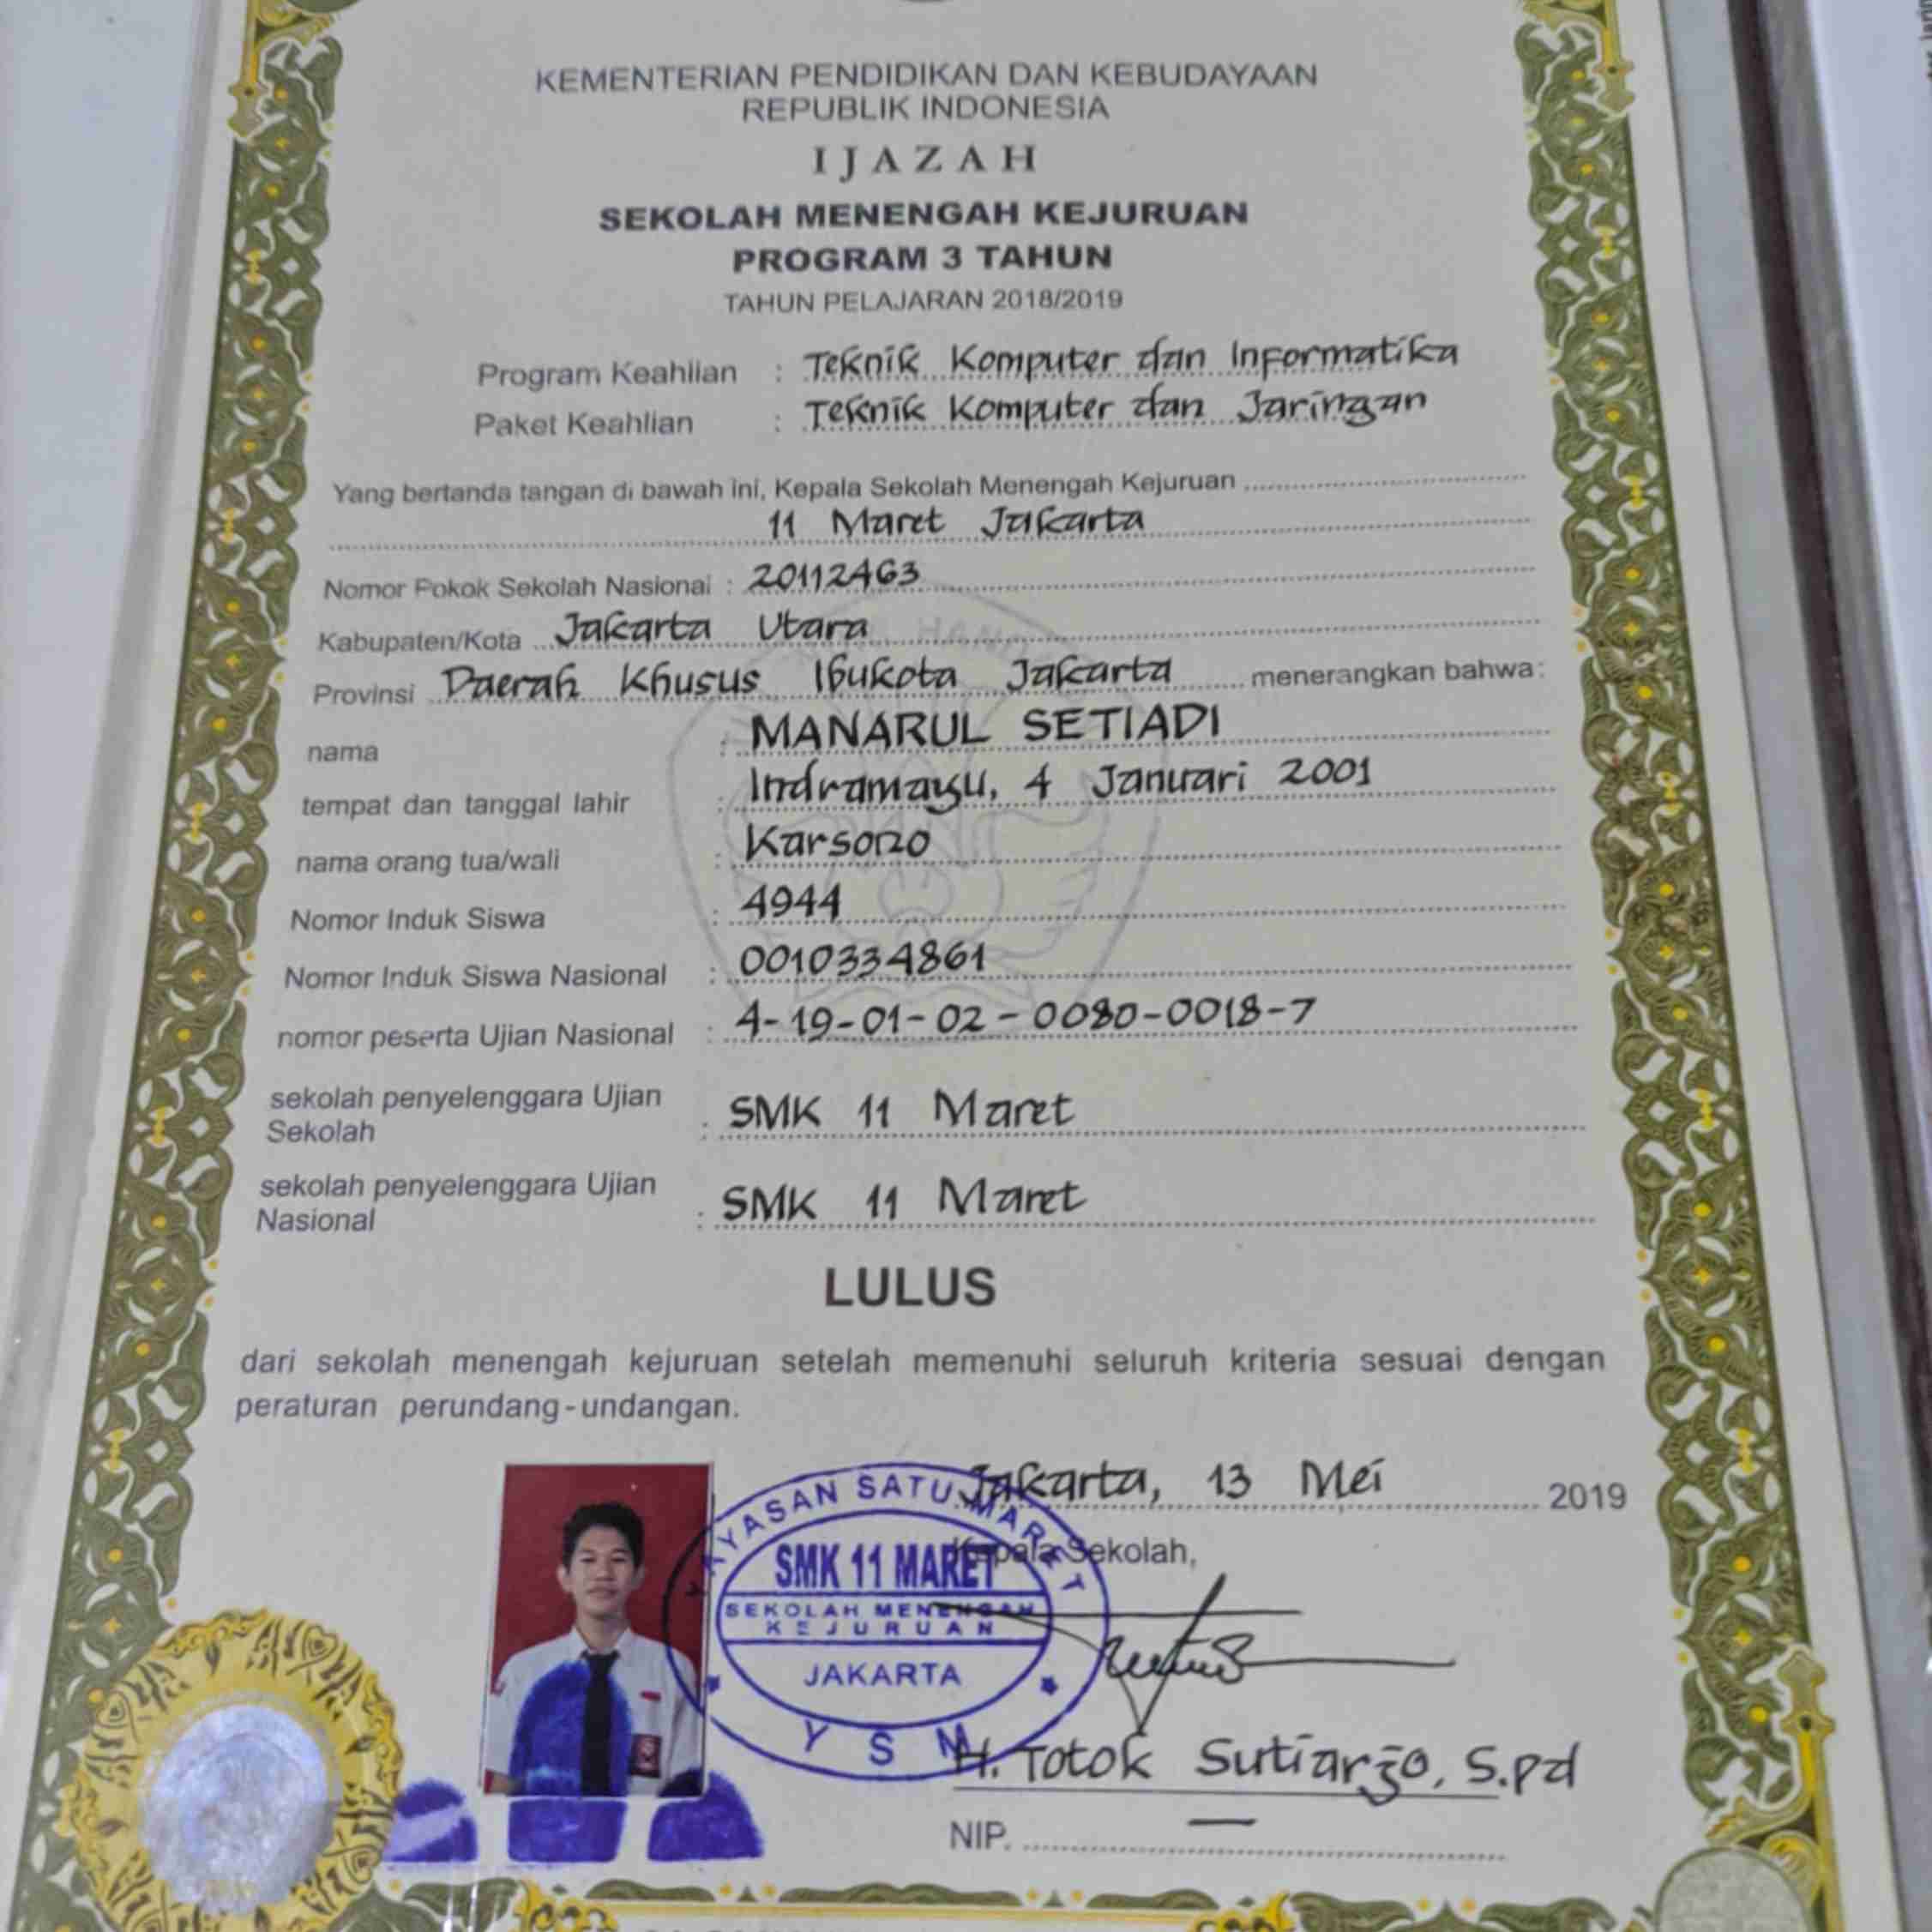 KEMENTERIAN PENDIDIKAN DAN KEBUDAYAAN
REPUBLIK INDONESIA
IJAZAH
SEKOLAH MENENGAH KEJURUAN
PROGRAM 3 TAHUN
TAHUN PELAJARAN 2018/2019
Program Keahlian : Teknik Komputer dan Informatika
Paket Keahlian : Teknik Komputer dan Jaringan
Yang bertanda tangan di bawah ini, Kepala Sekolah Menengah Kejuruan
11 Maret Jakarta
Nomor Pokok Sekolah Nasional : 20112463
Kabupaten/Kota Jakarta Utara
Provinsi Daerah Khusus Ibukota Jakarta menerangkan bahwa:
nama : MANARUL SETIADI
tempat dan tanggal lahir : Indramayu, 4 Januari 2001
nama orang tua/wali : Karsono
Nomor Induk Siswa : 4944
Nomor Induk Siswa Nasional : 0010334861
nomor peserta Ujian Nasional : 4-19-01-02-0080-0018-7
sekolah penyelenggara Ujian
Sekolah : SMK 11 Maret
sekolah penyelenggara Ujian
Nasional : SMK 11 Maret
LULUS
dari sekolah menengah kejuruan setelah memenuhi seluruh kriteria sesuai dengan
peraturan perundang-undangan.
Jakarta, 13 Mei 2019
Kepala Sekolah,
YAYASAN SATU MARET
SMK 11 MARET
SEKOLAH MENENGAH
KEJURUAN
JAKARTA
YSM
H. Totok Sutiarjo, S.pd
NIP. —